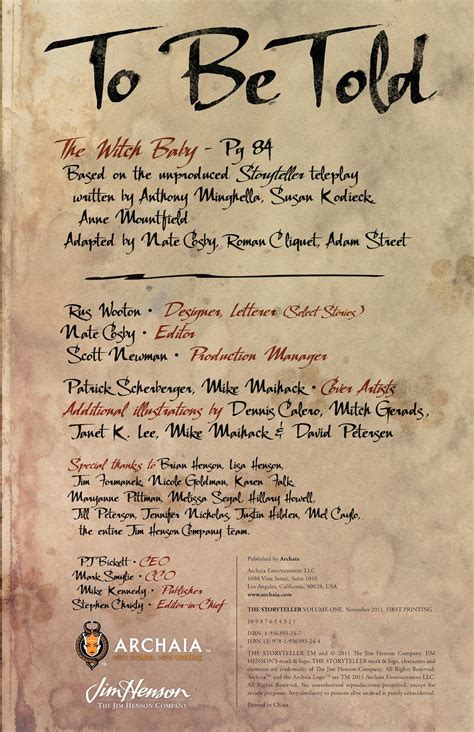 To Be Told
The Witch Baby - Pg 84
Based on the unproduced Storyteller teleplay
written by Anthony Minghella, Susan Kodieck,
Anne Mountfield
Adapted by Nate Cosby, Roman Cliquet, Adam Street
Rus Wooton • Designer, Letterer (Select Stories)
Nate Cosby • Editor
Scott Newman • Production Manager
Patrick Scherberger, Mike Maihack • Cover Artists
Additional illustrations by Dennis Calero, Mitch Gerads,
Janet K. Lee, Mike Maihack & David Petersen
Special thanks to Brian Henson, Lisa Henson,
Jim Formanek, Nicole Goldman, Karen Falk,
Maryanne Pittman, Melissa Segal, Hillary Howell,
Jill Peterson, Jennifer Nicholas, Justin Hilden, Mel Caylo,
the entire Jim Henson Company team.
PJ Bickett • CEO
Mark Smylie • CCO
Mike Kennedy • Publisher
Stephen Christy • Editor-in-Chief
ARCHAIA™
Jim Henson
THE JIM HENSON COMPANY
Published by Archaia
Archaia Entertainment LLC
1680 Vine Street, Suite 1010
Los Angeles, California, 90028, USA
www.archaia.com
THE STORYTELLER VOLUME ONE. November 2011. FIRST PRINTING
10 9 8 7 6 5 4 3 2 1
ISBN: 1-936393-24-7
ISBN 13: 978-1-936393-24-4
THE STORYTELLER TM and © 2011 The Jim Henson Company. JIM
HENSON'S mark & logo, THE STORYTELLER mark & logo, characters and
elements are trademarks of The Jim Henson Company. All Rights Reserved.
Archaia™ and the Archaia Logo™ are TM 2011 Archaia Entertainment LLC.
All Rights Reserved. No unauthorized reproductions permitted, except for
review purposes. Any similarity to persons alive or dead is purely coincidental.
Printed in China.